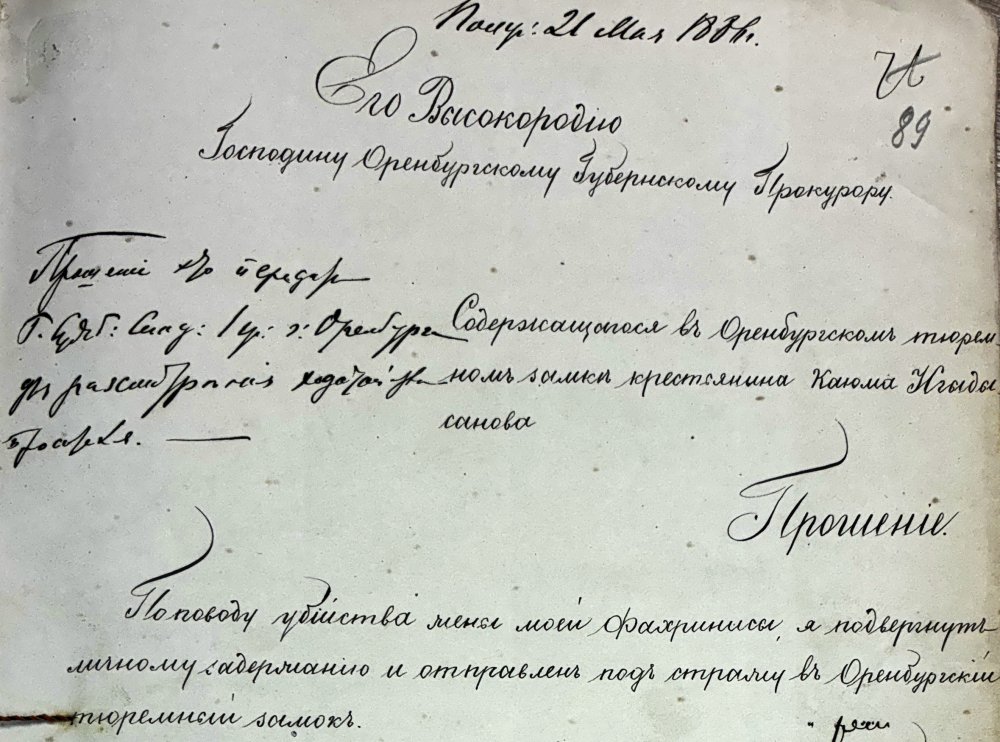 Получ: 21 Мая 188
89
Его Высокородію
Господину Оренбургскому Губернскому Прокурору.
Прошеніе это передать
Г. Суд: Слѣд: 1 уч: г: Оренбурга
Содержащагося въ Оренбургскомъ тюрем-
для разсмотрѣнія ходатайства
номъ замкѣ крестьянина Каюма Игыды
просителя.
санова
Прошеніе.
По поводу убійства жены моей Фахринисы, я подвергнутъ
личному задержанію и отправленъ подъ стражу въ Оренбургскій
тюремный замокъ.